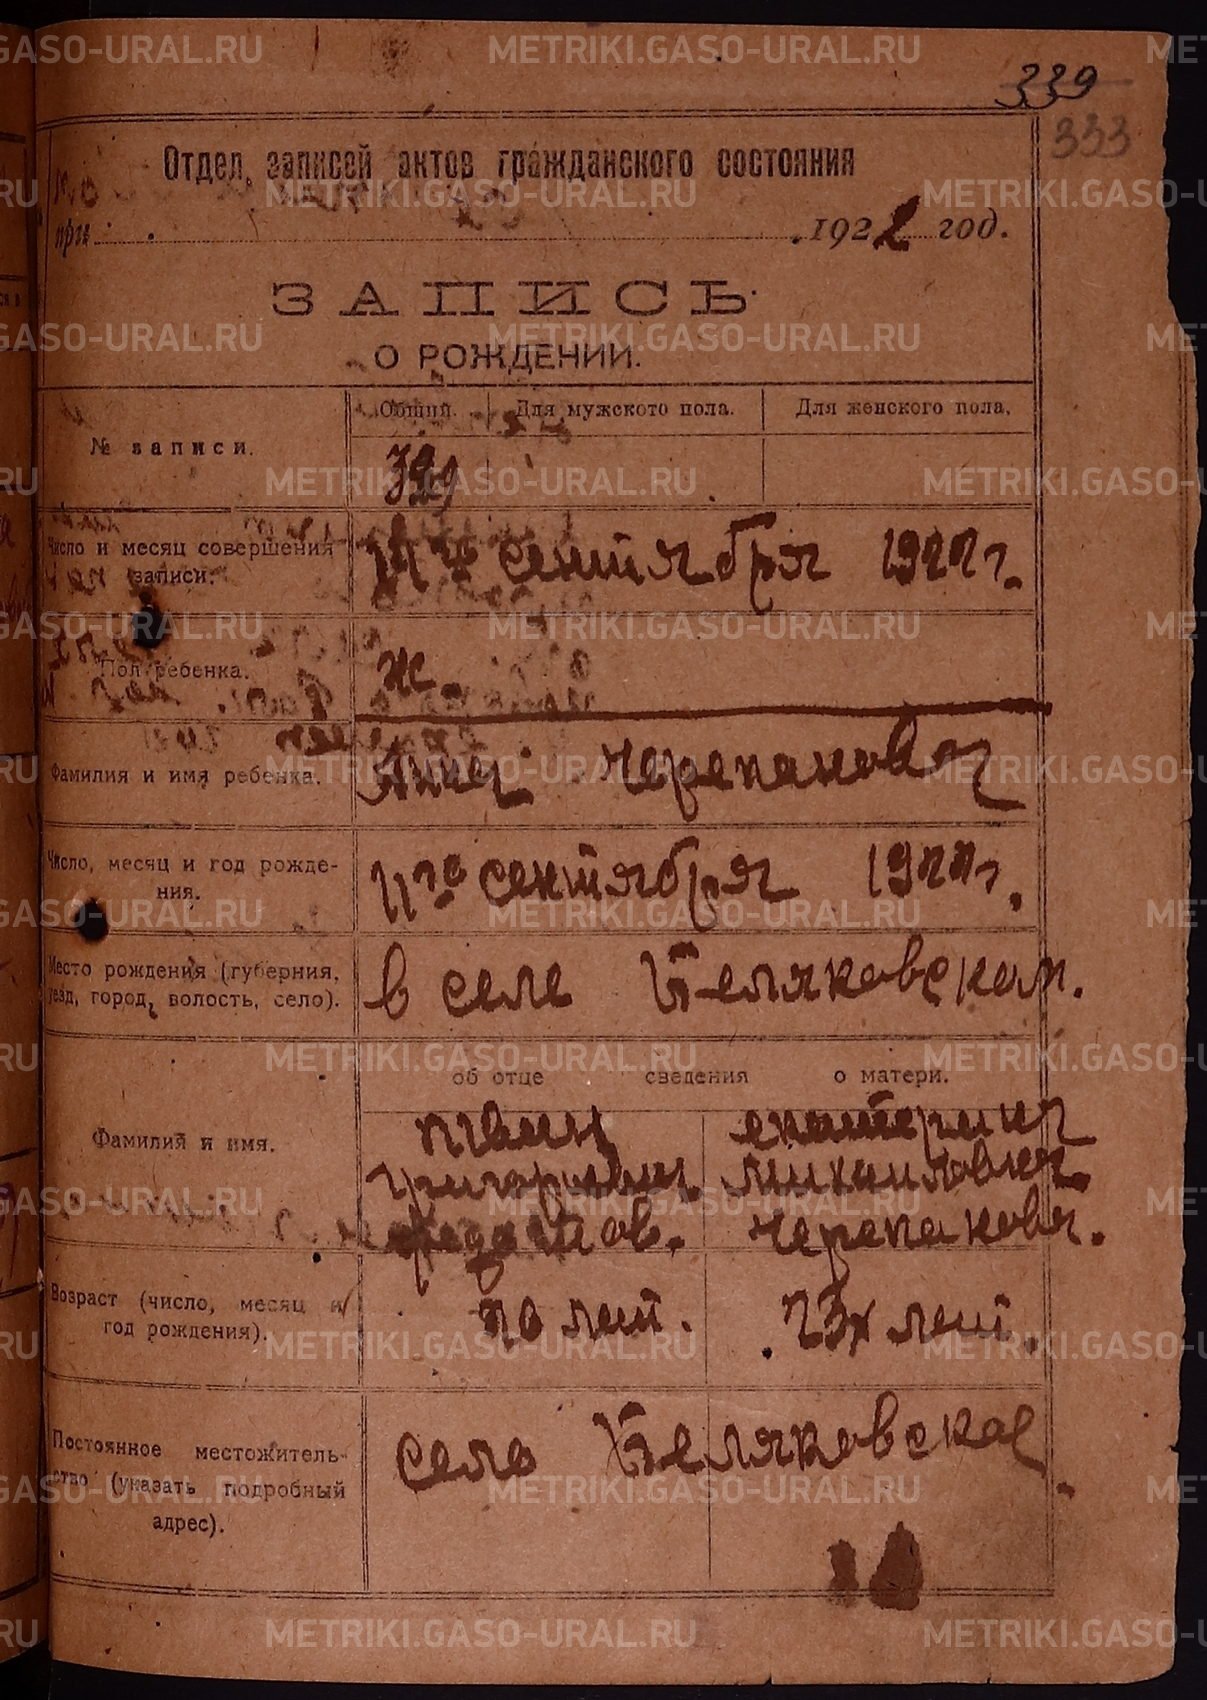 339
333
Отдел записей актов гражданского состояния
при 1922 год.
ЗАПИСЬ
О РОЖДЕНИИ.
№ записи.
Общий. Для мужского пола. Для женского пола.
Число и месяц совершения
записи.
сентября 1922 г.
Пол ребенка.
ж.
Фамилия и имя ребенка.
Анна Черепанова
Число, месяц и год рожде-
ния.
11го сентября 1922 г.
Место рождения (губерния,
уезд, город, волость, село).
в селе Беляковском.
об отце сведения о матери.
Фамилия и имя.
Иван екатерина
григорьевич михаиловна
Черепанова.
Возраст (число, месяц и
год рождения).
лет. 23х лет.
Постоянное местожитель-
ство (указать подробный
адрес).
село Беляковское
METRIKI.GASO-URAL.RU